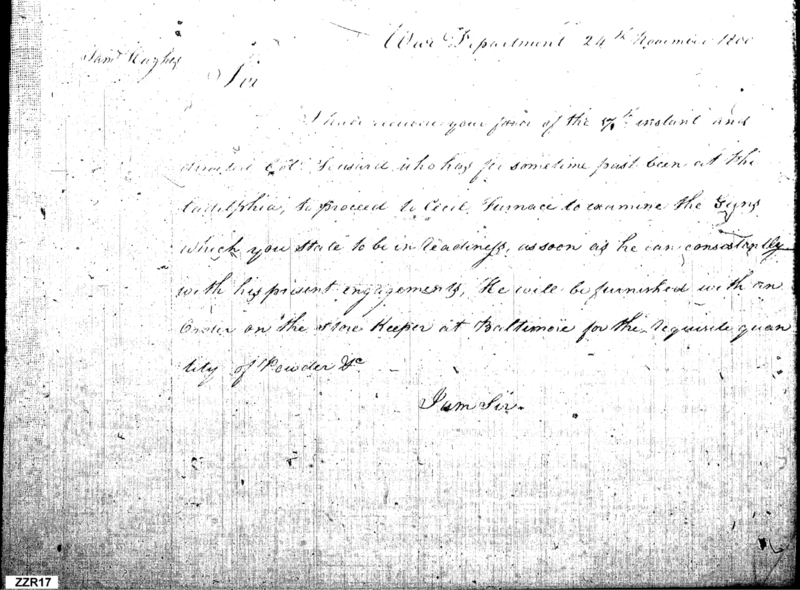 War Department 24th November 1800
Saml Hughes
Sir
I have received your favor of the instant and
directed Col. who has for sometime past been at Phi
ladelphia, to proceed to Cecil Furnace to examine the Guns
which you state to be in readiness, as soon as he can consistantly
with his present engagements, He will be furnished with an
Order on the Store Keeper at Baltimore for the requisite quan
tity of Powder &c
I am Sir.
ZZR17